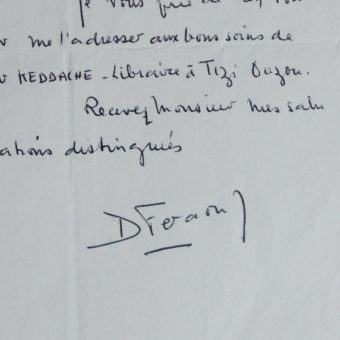 je vous prie de
me l'adresser aux bons soins de
KEDDACHE - Libraire à Tizi Ouzou.
Recevez Monsieur mes salu
ations distingués
DFeraoun